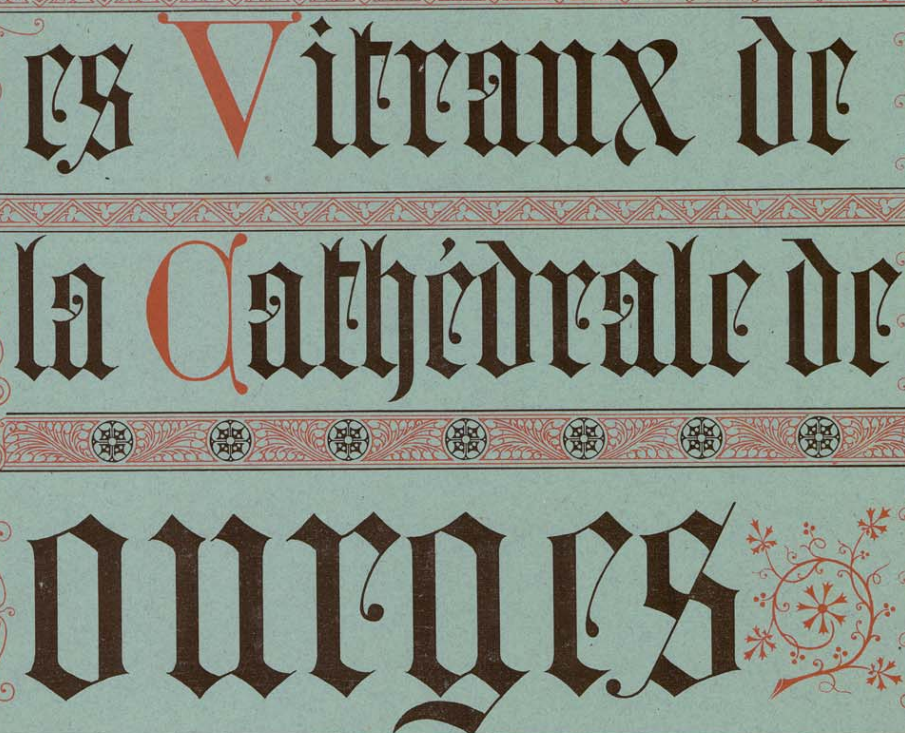 es Vitraux de
la Cathédrale de
ourges